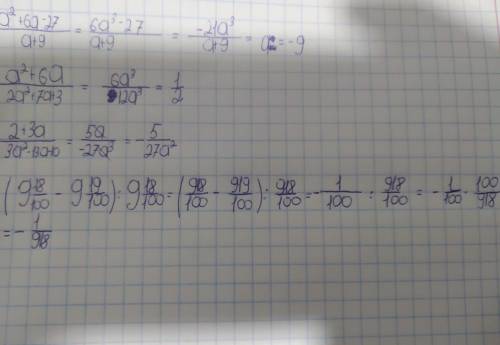 a²+6a-27/a+9 = 6a³-27/a+9 = -21a³/a+9 = a=-9
a²+6a/2a²+7a+3 = 6a³/12a³ = 1/2
2+3a/3a² = 5a/-27a³ = -5/27a²
(9 18/100 - 9 19/100) : 9 18/100 = (918/100 - 919/100) : 918/100 = -1/100 : 918/100 = -1/100 · 100/918
= -1/918